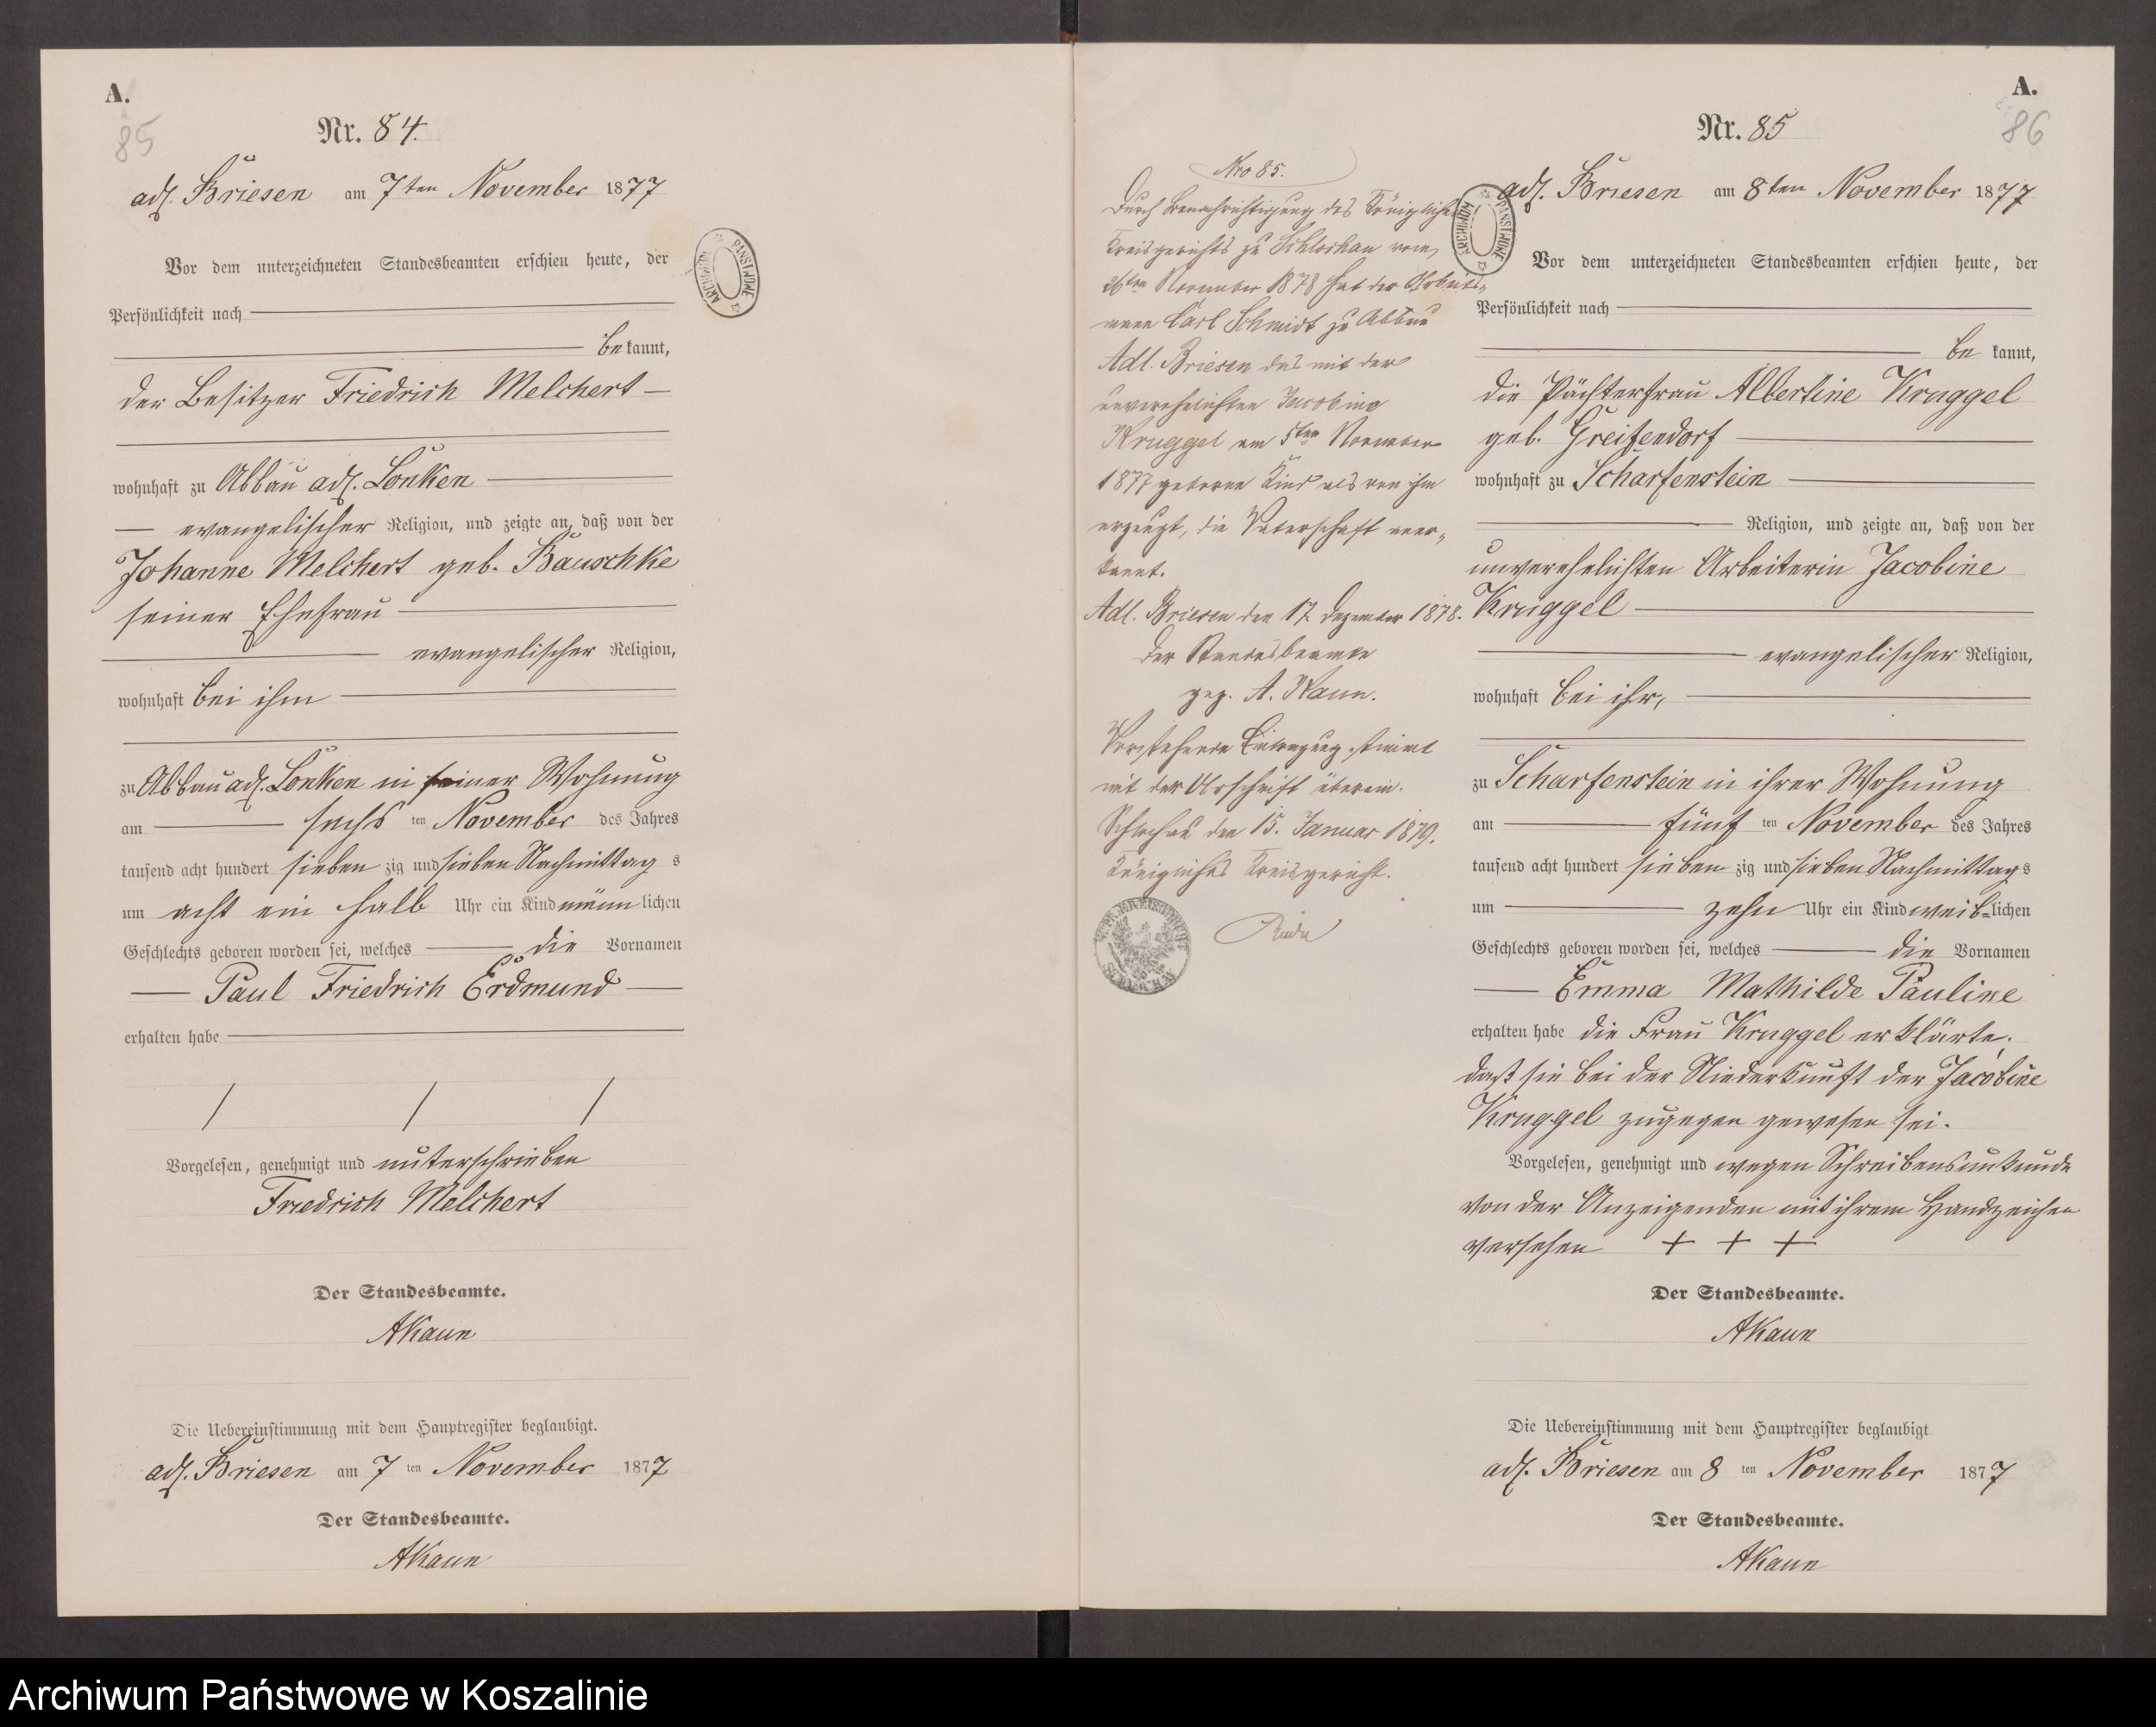 A.
85
Nr. 84.
adl. Briesen am 7ten November 1877
Vor dem unterzeichneten Standesbeamten erschien heute, der
Persönlichkeit nach
be kannt,
der Besitzer Friedrich Melchert
wohnhaft zu Abbau adl. Lonken
evangelischer Religion, und zeigte an, daß von der
Johanne Melchert geb. Bauschke
seiner Ehefrau
evangelischer Religion,
wohnhaft bei ihm
zu Abbau adl. Lonken in seiner Wohnung
am sechs ten November des Jahres
tausend acht hundert sieben zig und sieben Nachmittag s
um acht ein halb Uhr ein Kind männ lichen
Geschlechts geboren worden sei, welches die Vornamen
Paul Friedrich Erdmund
erhalten habe
Vorgelesen, genehmigt und unterschrieben
Friedrich Melchert
Der Standesbeamte.
AKaun
Die Uebereinstimmung mit dem Hauptregister beglaubigt.
adl. Briesen am 7 ten November 1877
Der Standesbeamte.
AKaun
ARCHIWUM PAŃSTWOWE
Nro 85.
Durch Benachrichtigung des Königlichen
Kreisgerichts zu Schlochau vom
26ten November 1878 hat der Arbeits-
mann Carl Schmidt zu Abbau
Adl. Briesen das mit der
unverehelichten Jacobine
Kruggel am 5ten November
1877 geborene Kind als von ihm
erzeugt, die Vaterschaft aner-
kannt.
Adl. Briesen den 17. Dezember 1878.
Der Standesbeamte
gez. A. Kaun.
Vorstehende Eintragung stimmt
mit der Urschrift überein.
Schlochau den 15. Januar 1879.
Königliches Kreisgericht.
A.
86
Nr. 85
adl. Briesen am 8ten November 1877
ARCHIWUM PAŃSTWOWE
Vor dem unterzeichneten Standesbeamten erschien heute, der
Persönlichkeit nach
be kannt,
die Pächterfrau Albertine Kruggel
geb. Greifendorf
wohnhaft zu Scharfenstein
Religion, und zeigte an, daß von der
unverehelichten Arbeiterin Jacobine
Kruggel
evangelischer Religion,
wohnhaft bei ihr,
zu Scharfenstein in ihrer Wohnung
am fünf ten November des Jahres
tausend acht hundert sieben zig und sieben Nachmittag s
um zehn Uhr ein Kind weib-lichen
Geschlechts geboren worden sei, welches die Vornamen
Emma Mathilde Pauline
erhalten habe die Frau Kruggel erklärte,
daß sie bei der Niederkunft der Jacobine
Kruggel zugegen gewesen sei.
Vorgelesen, genehmigt und wegen Schreibensunkunde
von der Anzeigenden mit ihrem Handzeichen
versehen + + +
Der Standesbeamte.
AKaun
Die Uebereinstimmung mit dem Hauptregister beglaubigt
adl. Briesen am 8 ten November 1877
Der Standesbeamte.
AKaun
Archiwum Państwowe w Koszalinie